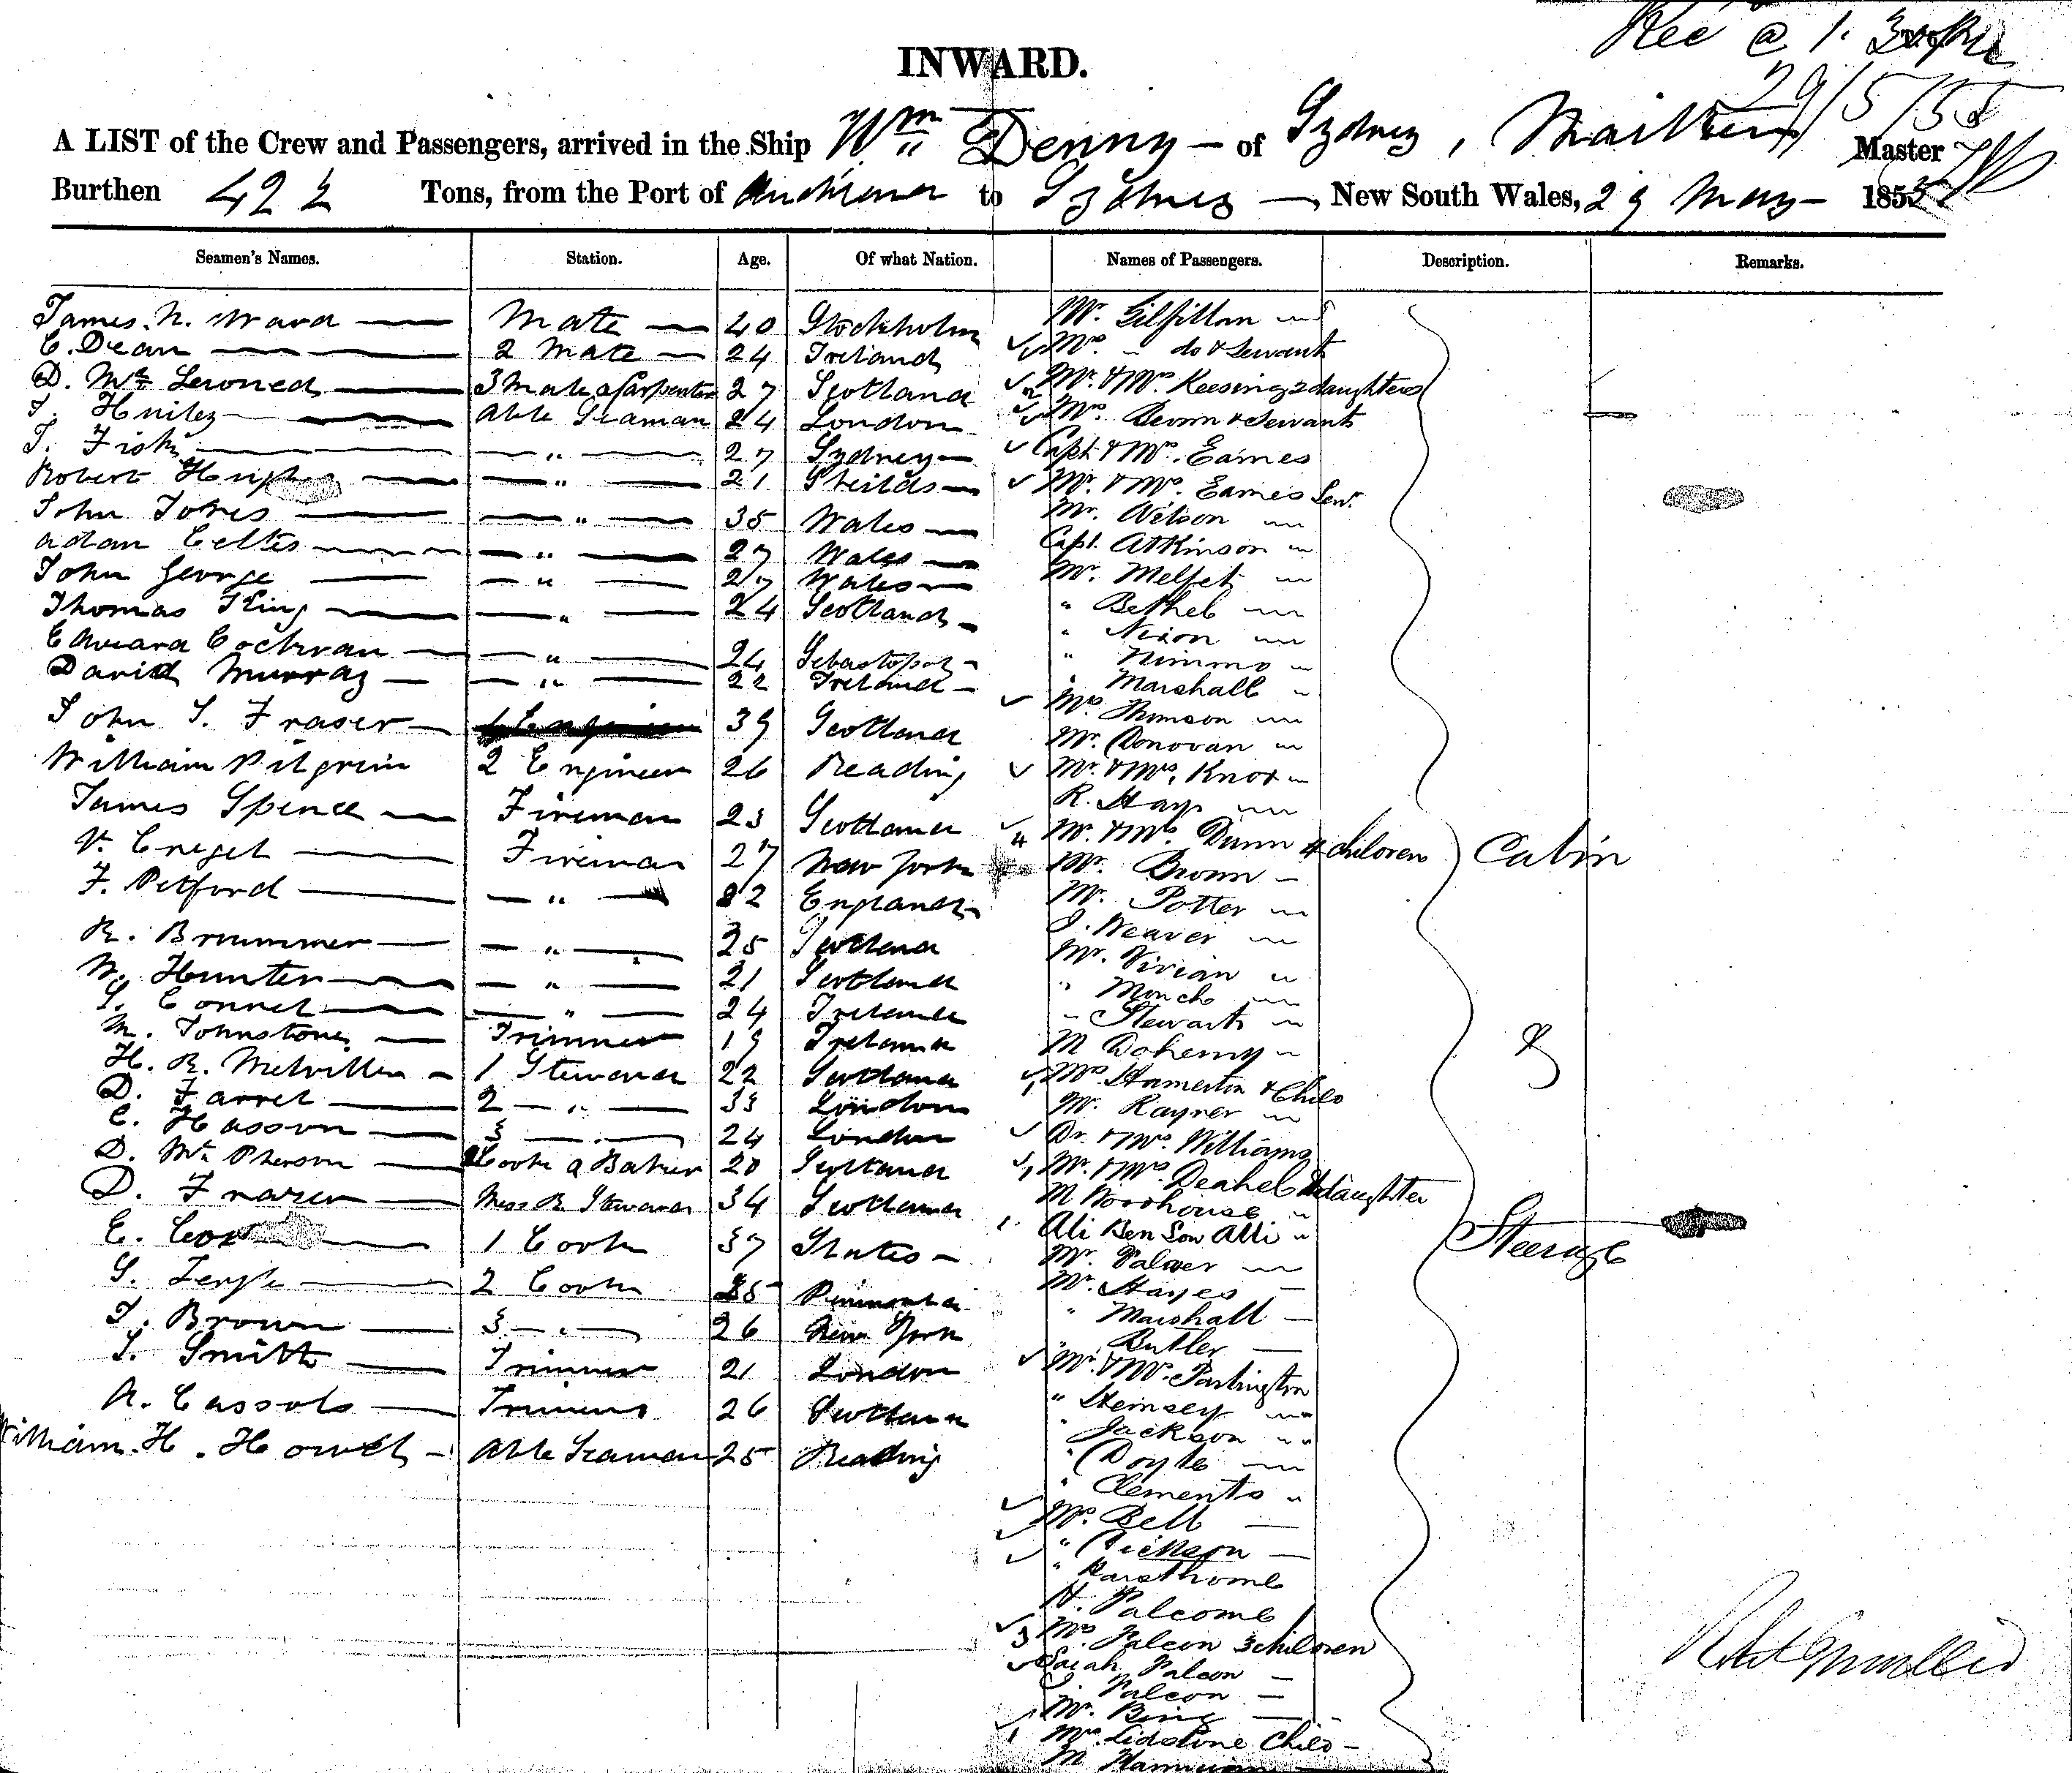 Rec @ 1.30 PM
29/5/55
INWARD.
A LIST of the Crew and Passengers, arrived in the Ship Wm Denny - of Sydney, Master
Burthen 422 Tons, from the Port of to Sydney - New South Wales, 29 May - 1855
Seamen's Names. Station. Age. Of what Nation. Names of Passengers. Description. Remarks.
James. N. Ward Mate 40 Stockholm
C. Dean 2 Mate 24 Ireland
D. Mc 3 Mate & Carpenter 27 Scotland
T. Able Seaman 24 London
T. Fish " 27 Sydney
Robert " 21 Sheilds
John Jones " 35 Wales
Adam " 27 Wales
John George " 27 Wales
Thomas King " 24 Scotland
Edward Cochran " 24 Sebastopol
David Murray " 22 Ireland
John S. Fraser 1 Engineer 39 Scotland
William Pilgrim 2 Engineer 26 Reading
James Spence Fireman 23 Scotland
V. Fireman 27 New York
F. Petford " 22 England
R. Brummer " 25 Scotland
W. Hunter " 21 Scotland
S. Connel " 24 Ireland
M. Johnstone Trimmer 19 Ireland
H. R. Melville 1 Steward 22 Scotland
D. Farrel 2 " 33 London
C. Hasson 3 " 24 London
D. Mc Pherson Cook & Baker 20 Scotland
D. Fraser Mess R Steward 34 Scotland
E. 1 Cook 37 States
S. 2 Cook 35
T. Brown 3 " 26 New York
S. Smith Trimmer 21 London
A. Cassols Trimmer 26 Scotland
William. H. Howel Able Seaman 25 Reading
Mr. Gilfillan
Mrs. " do & Servant
Mr. & Mrs Keesing 2 daughters
Mrs. & Servant
Capt & Mrs. Eames
Mr. & Mrs. Eames Senr.
Mr. Wilson
Capt. Atkinson
Mr. Melfet
" Bethel
" Nixon
" Nimmo
" Marshall
Mrs. Thomson
Mr. Donovan
Mr. & Mrs. Knox
R. Hays
4 Mr. & Mrs. Dunn 4 children
Cabin
Mr. Brown
Mr. Potter
J. Weaver
Mr. Vivian
" Monch
" Stewart
M Doherny
&
1 Mrs. Hamerton & Child
Mr. Rayner
Dr. & Mrs. Williams
1 Mr. & Mrs. Deahel & daughter
M Woodhouse
1 Ali Ben Sou Alli
Steerage
Mr. Palmer
Mr. Hayes
" Marshall
" Butler
Mr. & Mrs. Partington
" Hemsley
" Jackson
" Doyle
" Clements
Mrs. Bell
" Dickson
"
H. Falcome
3 Mrs. Falcon 3 children
Sarah Falcon
J. Falcon
Mr. Bing
1 Mrs. Lidstone Child
M